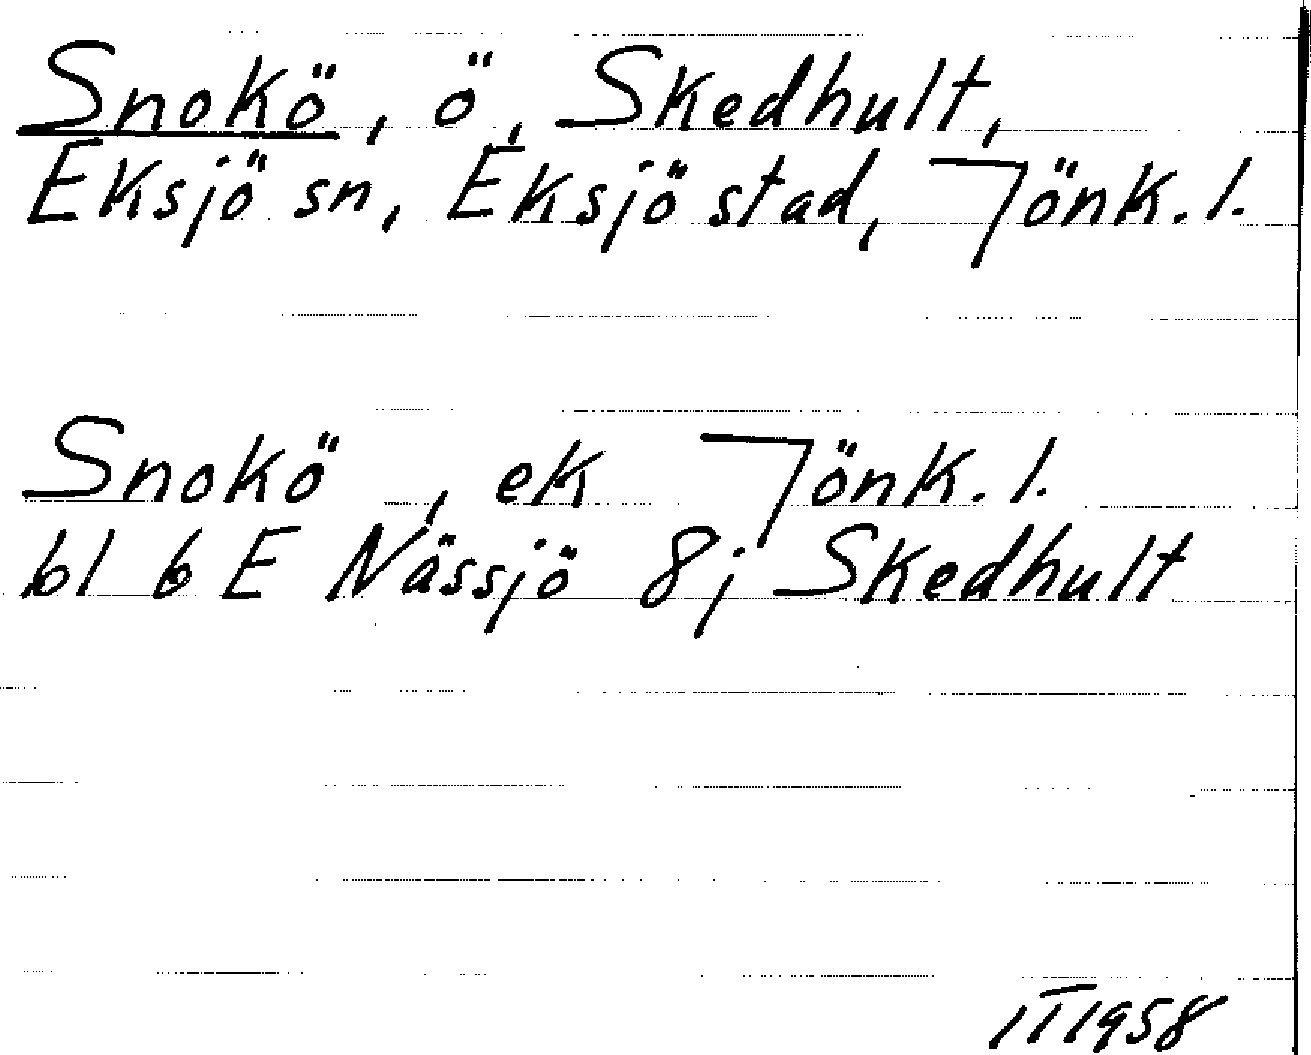 Snokö, ö, Skedhult,
Eksjö sn, Eksjö stad, Jönk. l.
Snokö , ek Jönk. l.
bl 6 E Nässjö 8j Skedhult
1958